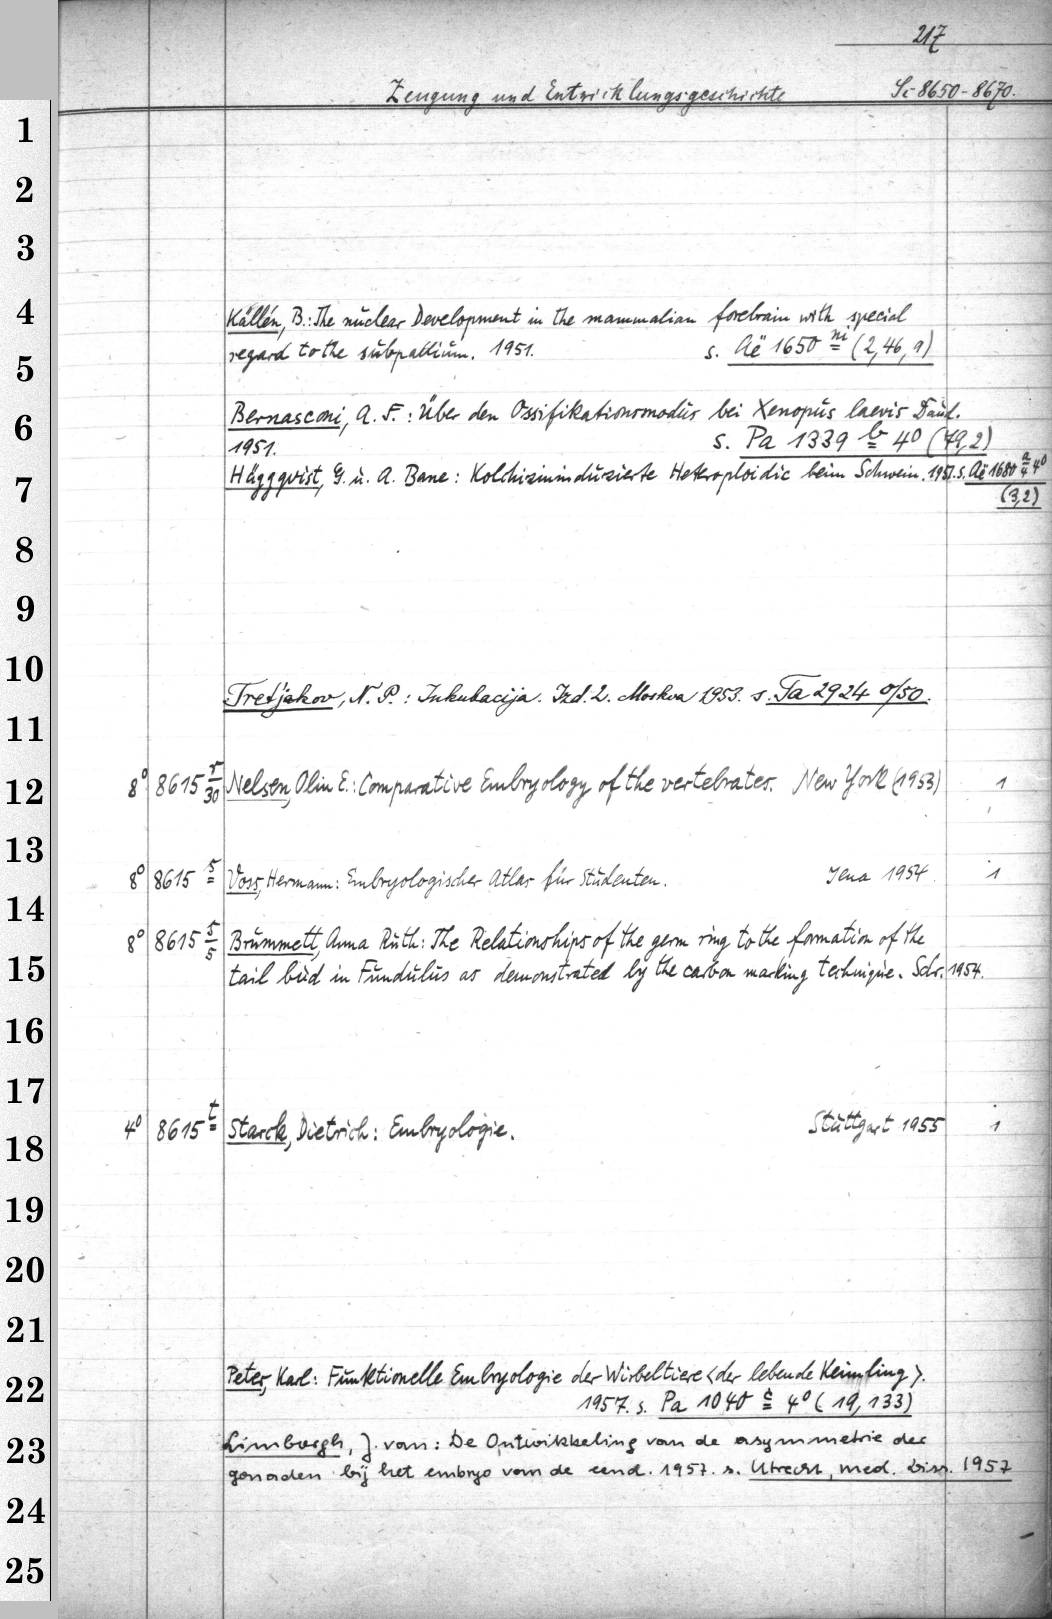 217
Zeugung und Entwicklungsgeschichte Si-8650-8670.
1
2
3
4
Källén, B.: The nuclear Development in the mammalian forebrain with special
5
regard to the subpallium. 1951. s. Aë 1650 ni (2,46,1)
6
Bernasconi, A. F.: Über den Ossifikationsmodus bei Xenopus laevis Daud.
1951. s. Pa 1339 b 4° (79,2)
7
Häggqvist, G. u. A. Bane: Kolchizininduzierte Heteroploidie beim Schwein. 1951. s. Aë 1680 a/4 4°
(3,2)
8
9
10
Tret'jakov, N. P.: Inkubacija. Izd. 2. Moskva 1953. s. Ta 2924 o/50.
11
12
8° 8615 r/30 Nelsen, Olin E.: Comparative Embryology of the vertebrates. New York (1953) 1
13
8° 8615 s Voss, Hermann: Embryologischer Atlas für Studenten. Jena 1954. 1
14
8° 8615 s/5 Brummett, Anna Ruth: The Relationships of the germ ring to the formation of the
15
tail bud in Fundulus as demonstrated by the carbon marking technique. Sdr. 1954.
16
17
18
4° 8615 t Starck, Dietrich: Embryologie. Stuttgart 1955 1
19
20
21
22
Peter, Karl: Funktionelle Embryologie der Wirbeltiere <der lebende Keimling>.
1957. s. Pa 1040 c 4° (19,133)
23
Limborgh, J. van: De Ontwikkeling van de asymmetrie der
gonaden bij het embryo van de eend. 1957. s. Utrecht, med. Diss. 1957
24
25